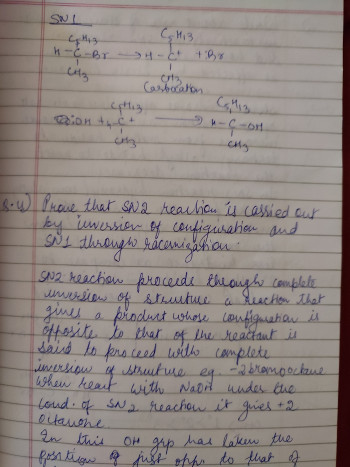 SN1
C6H13 C6H13
H - C - Br → H - C+ + :Br
CH3 CH3
Carbocation
C6H13 C6H13
OH + H - C+ → H - C - OH
CH3 CH3
Q.4) Prove that SN2 reaction is carried out
by inversion of configuration and
SN1 through racemization.
SN2 reaction proceeds through complete
inversion of structure a reaction that
gives a product whose configuration is
opposite to that of the reactant is
said to proceed with complete
inversion of structure eg. -2 bromooctane
when react with NaOH under the
cond. of SN2 reaction it gives +2
octanone
In this OH grp has taken the
position just opp. to that of